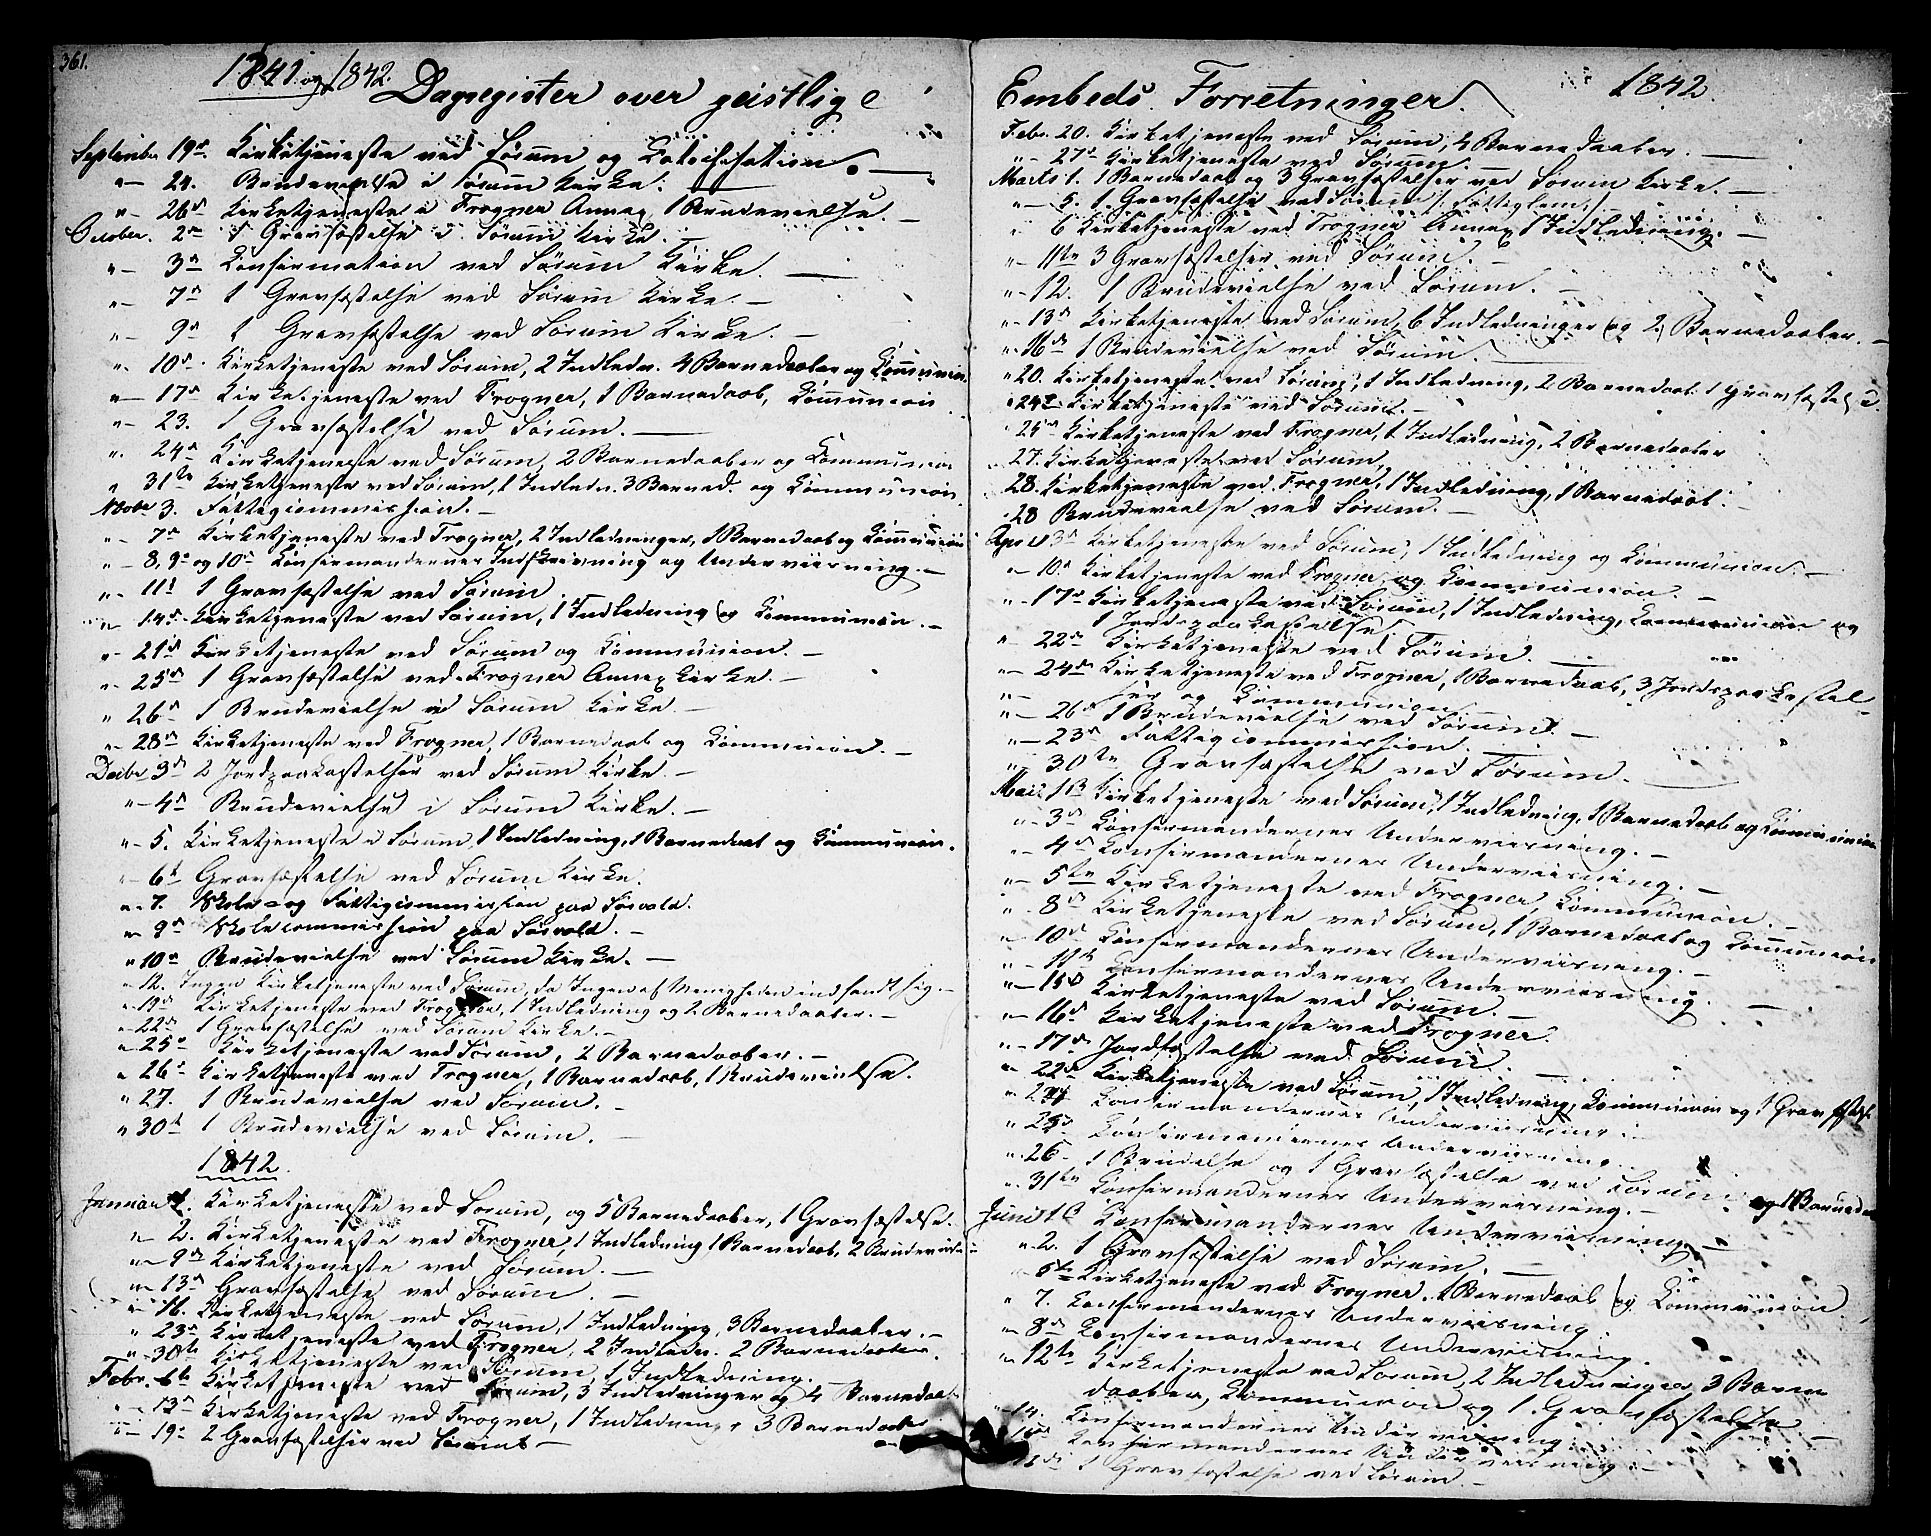 361.
1841. og 1842. Dagregister over geistlige
September 19de Kirketjeneste ved Sørum og Catechisation. —
" — 24. Brudevielse i Sørum Kirke. —
" — 26de Kirketjeneste i Frogner Annex, 1 Brudevielse. —
October. 2den 1 Gravfæstelse i Sørum Kirke. —
" — 3de Confirmation ved Sørum Kirke. —
" — 7de 1 Gravfæstelse ved Sørum Kirke. —
" — 9de 1 Gravfæstelse ved Sørum Kirke. —
" — 10de Kirketjeneste ved Sørum, 2 Indledn. 4 Barnedaaber og Communion.
" — 17de Kirketjeneste ved Frogner, 1 Barnedaab, Communion
" — 23. 1 Gravfæstelse ved Sørum. —
" — 24de Kirketjeneste ved Sørum, 2 Barnedaaber og Communion
" 31te Kirketjeneste ved Sørum, 1 Indledn. 3 Barned. og Communion.
Novbr 3. Fattigcommission. —
" — 7de Kirketjeneste ved Frogner, 2 Indledninger, 1 Barnedaab og Communion
" — 8, 9de og 10de Confirmandernes Indskrivning og Underviisning. —
" — 11te 1 Gravfæstelse ved Sørum.
" — 14de Kirketjeneste ved Sørum, 1 Indledning og Communion. —
" — 21de Kirketjeneste ved Sørum og Communion. —
" — 25de 1 Gravfæstelse ved Frogner Annex Kirke. —
" 26de 1 Brudevielse ved Sørum Kirke. —
" — 28de Kirketjeneste ved Frogner, 1 Barnedaab og Communion. —
Decbr 3de 2 Jordpaakastelser ved Sørum Kirke. —
" — 4de Brudevielse i Sørum Kirke. —
" — 5. Kirketjeneste i Sørum, 1 Indledning, 1 Barnedaab og Communion.
" — 6te Gravfæstelse ved Sørum Kirke.
" — 7. Skole- og Fattigcommission paa Sørvald.
" — 9de Skolecommission paa Sørvald. —
" 10de Brudevielse ved Sørum Kirke. —
" 12. Ingen Kirketjeneste ved Sørum, da Ingen af Menigheden indfandt sig. —
" 19de Kirketjeneste ved Frogner, 1 Indledning og 2 Barnedaaber. —
" 22de 1 Gravfæstelse ved Sørum Kirke. —
" 25de Kirketjeneste ved Sørum, 2 Barnedaaber. —
" 26de Kirketjeneste ved Frogner, 1 Barnedaab, 1 Brudevielse.
" 27. 1 Brudevielse ved Sørum. —
" 30te 1 Brudevielse ved Sørum. —
1842.
Januar 1. Kirketjeneste ved Sørum, og 5 Barnedaaber, 1 Gravfæstelse.
" 2. Kirketjeneste ved Frogner, 1 Indledning 1 Barnedaab, 2 Brudevielser
" — 9de Kirketjeneste ved Sørum. —
" — 13de Gravfæstelse ved Sørum. —
" 16. Kirketjeneste ved Sørum, 1 Indledning, 3 Barnedaaber. —
" 23de Kirketjeneste ved Frogner, 2 Indledn. 2 Barnedaaber.
" — 30te Kirketjeneste ved Sørum, 1 Indledning.
Febr. 6te Kirketjeneste ved Sørum, 3 Indledninger og 4 Barnedaaber
" — 13de Kirketjeneste ved Frogner, 1 Indledning, 3 Barnedaaber
" — 19de 2 Gravfæstelser ved Sørum —
Embeds Forretninger. 1842.
Febr. 20. Kirketjeneste ved Sørum, 4 Barnedaaber. —
" — 27de Kirketjeneste ved Sørum. —
Marts 1. 1 Barnedaab og 3 Gravfæstelser ved Sørum Kirke. —
" — 5. 1 Gravfæstelse ved Sørum /: Fattiglem :/
" 6 Kirketjeneste ved Frogner Annex, 1 Indledning. —
" — 11te 3 Gravfæstelser ved Sørum. —
" — 12. 1 Brudevielse ved Sørum. —
" — 13de Kirketjeneste ved Sørum, 6 Indledninger og 2 Barnedaaber. —
" 16de 1 Brudevielse ved Sørum. —
" 20. Kirketjeneste ved Sørum, 1 Indledning, 2 Barnedaab. 1 Gravfæstelse.
" 24de Kirketjeneste ved Sørum. —
" 25de Kirketjeneste ved Frogner, 1 Indledning, 2 Barnedaaber
" 27. Kirketjeneste ved Sørum,
" 28. Kirketjeneste ved Frogner, 1 Indledning, 1 Barnedaab. —
" 28 Brudevielse ved Sørum. —
April 3de Kirketjeneste ved Sørum, 1 Indledning og Communion. —
" — 10. Kirketjeneste ved Frogner og Communion. —
" — 17de Kirketjeneste ved Sørum, 1 Indledning, Communion og
1 Jordpaakastelse.
" 22de Kirketjeneste ved Sørum. —
" — 24de Kirketjeneste ved Frogner, 1 Barnedaab, 3 Jordpaakastel-
" — ser og Communion.
" — 26de 1 Brudevielse ved Sørum. —
" — 23de Fattigcommission. —
" 30te Gravfæstelse ved Sørum. —
Mai 1ste Kirketjeneste ved Sørum, 1 Indledning, 1 Barnedaab og Communion
" — 3de Confirmandernes Underviisning. —
" — 4de Confirmandernes Underviisning. —
" — 5te Kirketjeneste ved Frogner, Communion. —
" 8de Kirketjeneste ved Sørum, 1 Barnedaab og Communion
" 10de Confirmandernes Underviisning. —
" — 11te Confirmandernes Underviisning. —
" — 15de Kirketjeneste ved Sørum. —
" — 16de Kirketjeneste ved Frogner.
" — 17de Jordfæstelse ved Sørum. —
" — 22de Kirketjeneste ved Sørum, 1 Indledning, Communion og 1 Gravfæstel.
" 24de Confirmandernes Underviisning. —
" 25de Confirmandernes Underviisning.
" 26 — 1 Brudelse og 1 Gravfæstelse ved Sørum og 1 Barnedaab
" 31te Confirmandernes Underviisning. —
Juni 1ste Confirmandernes Underviisning. —
" 2. 1 Gravfæstelse ved Sørum. —
" 5te Kirketjeneste ved Frogner, 1 Barnedaab og Communion
" 7. Confirmandernes Underviisning.
" 8de Confirmandernes Underviisning.
" 12te Kirketjeneste ved Sørum, 2 Indledninger, 3 Barne
daaber, Communion og 1 Gravfæstelse. —
" 14. Confirmandernes Underviisning.
Confirmandernes Underviisning. —
1 Gravfæstelse ved Sørum. —